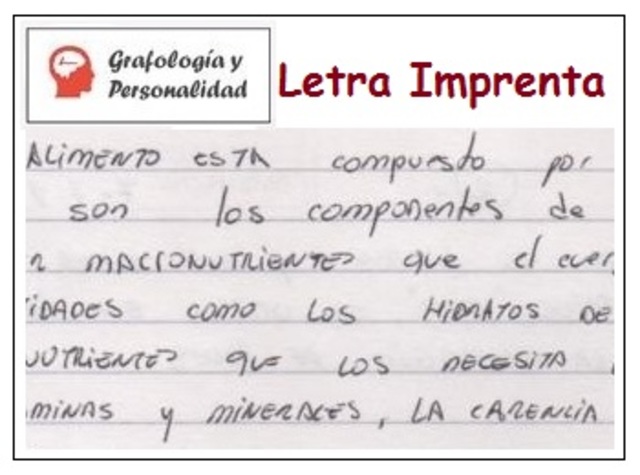 Grafología y
Personalidad
Letra Imprenta
ALiMENTO ESTA compuesto por
son los componentes de
MACRONUTRiENTES que el
iDADES como LOS HiDRATOS DE
NUTRiENTES que LOS NECESITA
MINAS y MiNERALES, LA CARENCIA